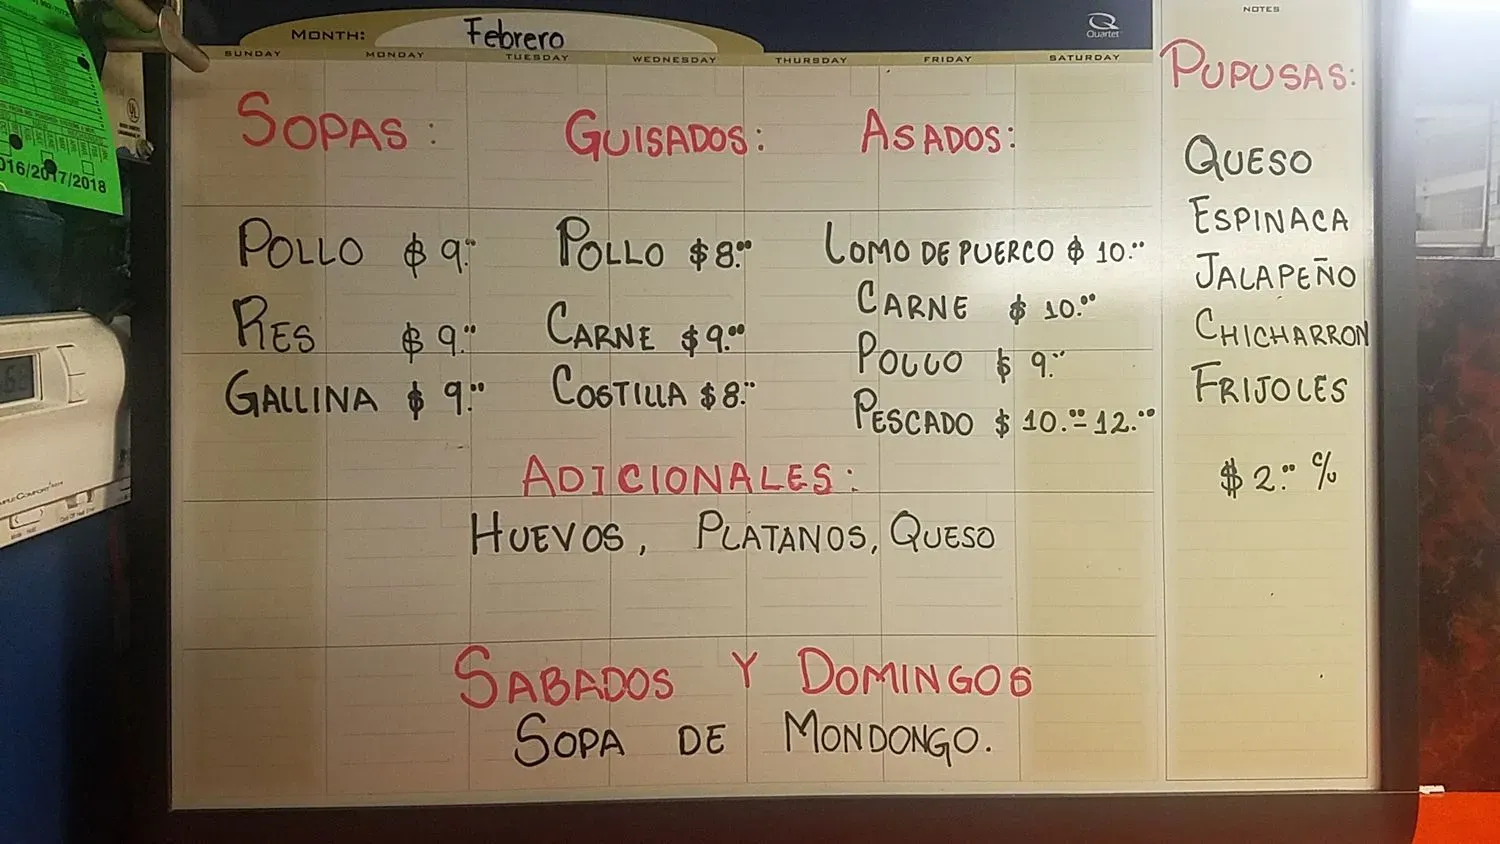 MONTH: Febrero
Quartet
NOTES
SUNDAY MONDAY TUESDAY WEDNESDAY THURSDAY FRIDAY SATURDAY
SOPAS:
POLLO $ 9.00
RES $ 9.00
GALLINA $ 9.00
GUISADOS:
POLLO $8.00
CARNE $9.00
COSTILLA $8.00
ASADOS:
LOMO DE PUERCO $ 10.00
CARNE $ 10.00
POLLO $ 9.00
PESCADO $ 10.00-12.00
ADICIONALES:
HUEVOS, PLATANOS, QUESO
SABADOS Y DOMINGOS
SOPA DE MONDONGO.
PUPUSAS:
QUESO
ESPINACA
JALAPEÑO
CHICHARRON
FRIJOLES
$ 2.00 c/u
016/2017/2018